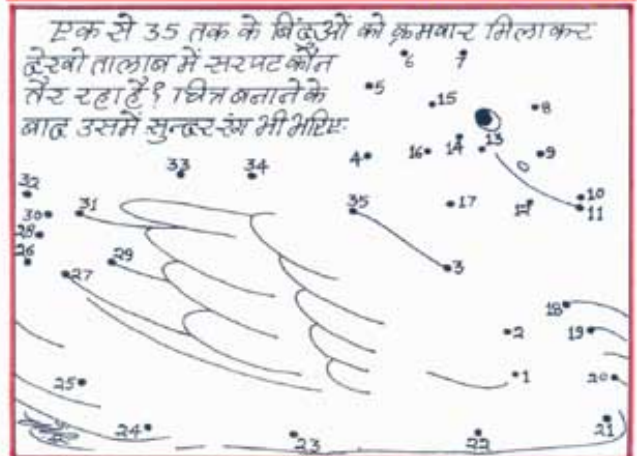 एक से 35 तक के बिंदुओं को क्रमवार मिलाकर
देखो तालाब में सरपट कौन
तैर रहा है? चित्र बनाने के
बाद उसमें सुन्दर रंग भी भरिए
6 7
5 15 8
16 14 13 9
4
33 34
32 10
30 31 35 17 12 11
28
26 29 3
27
18
2 19
1 20
25
24 23 22 21